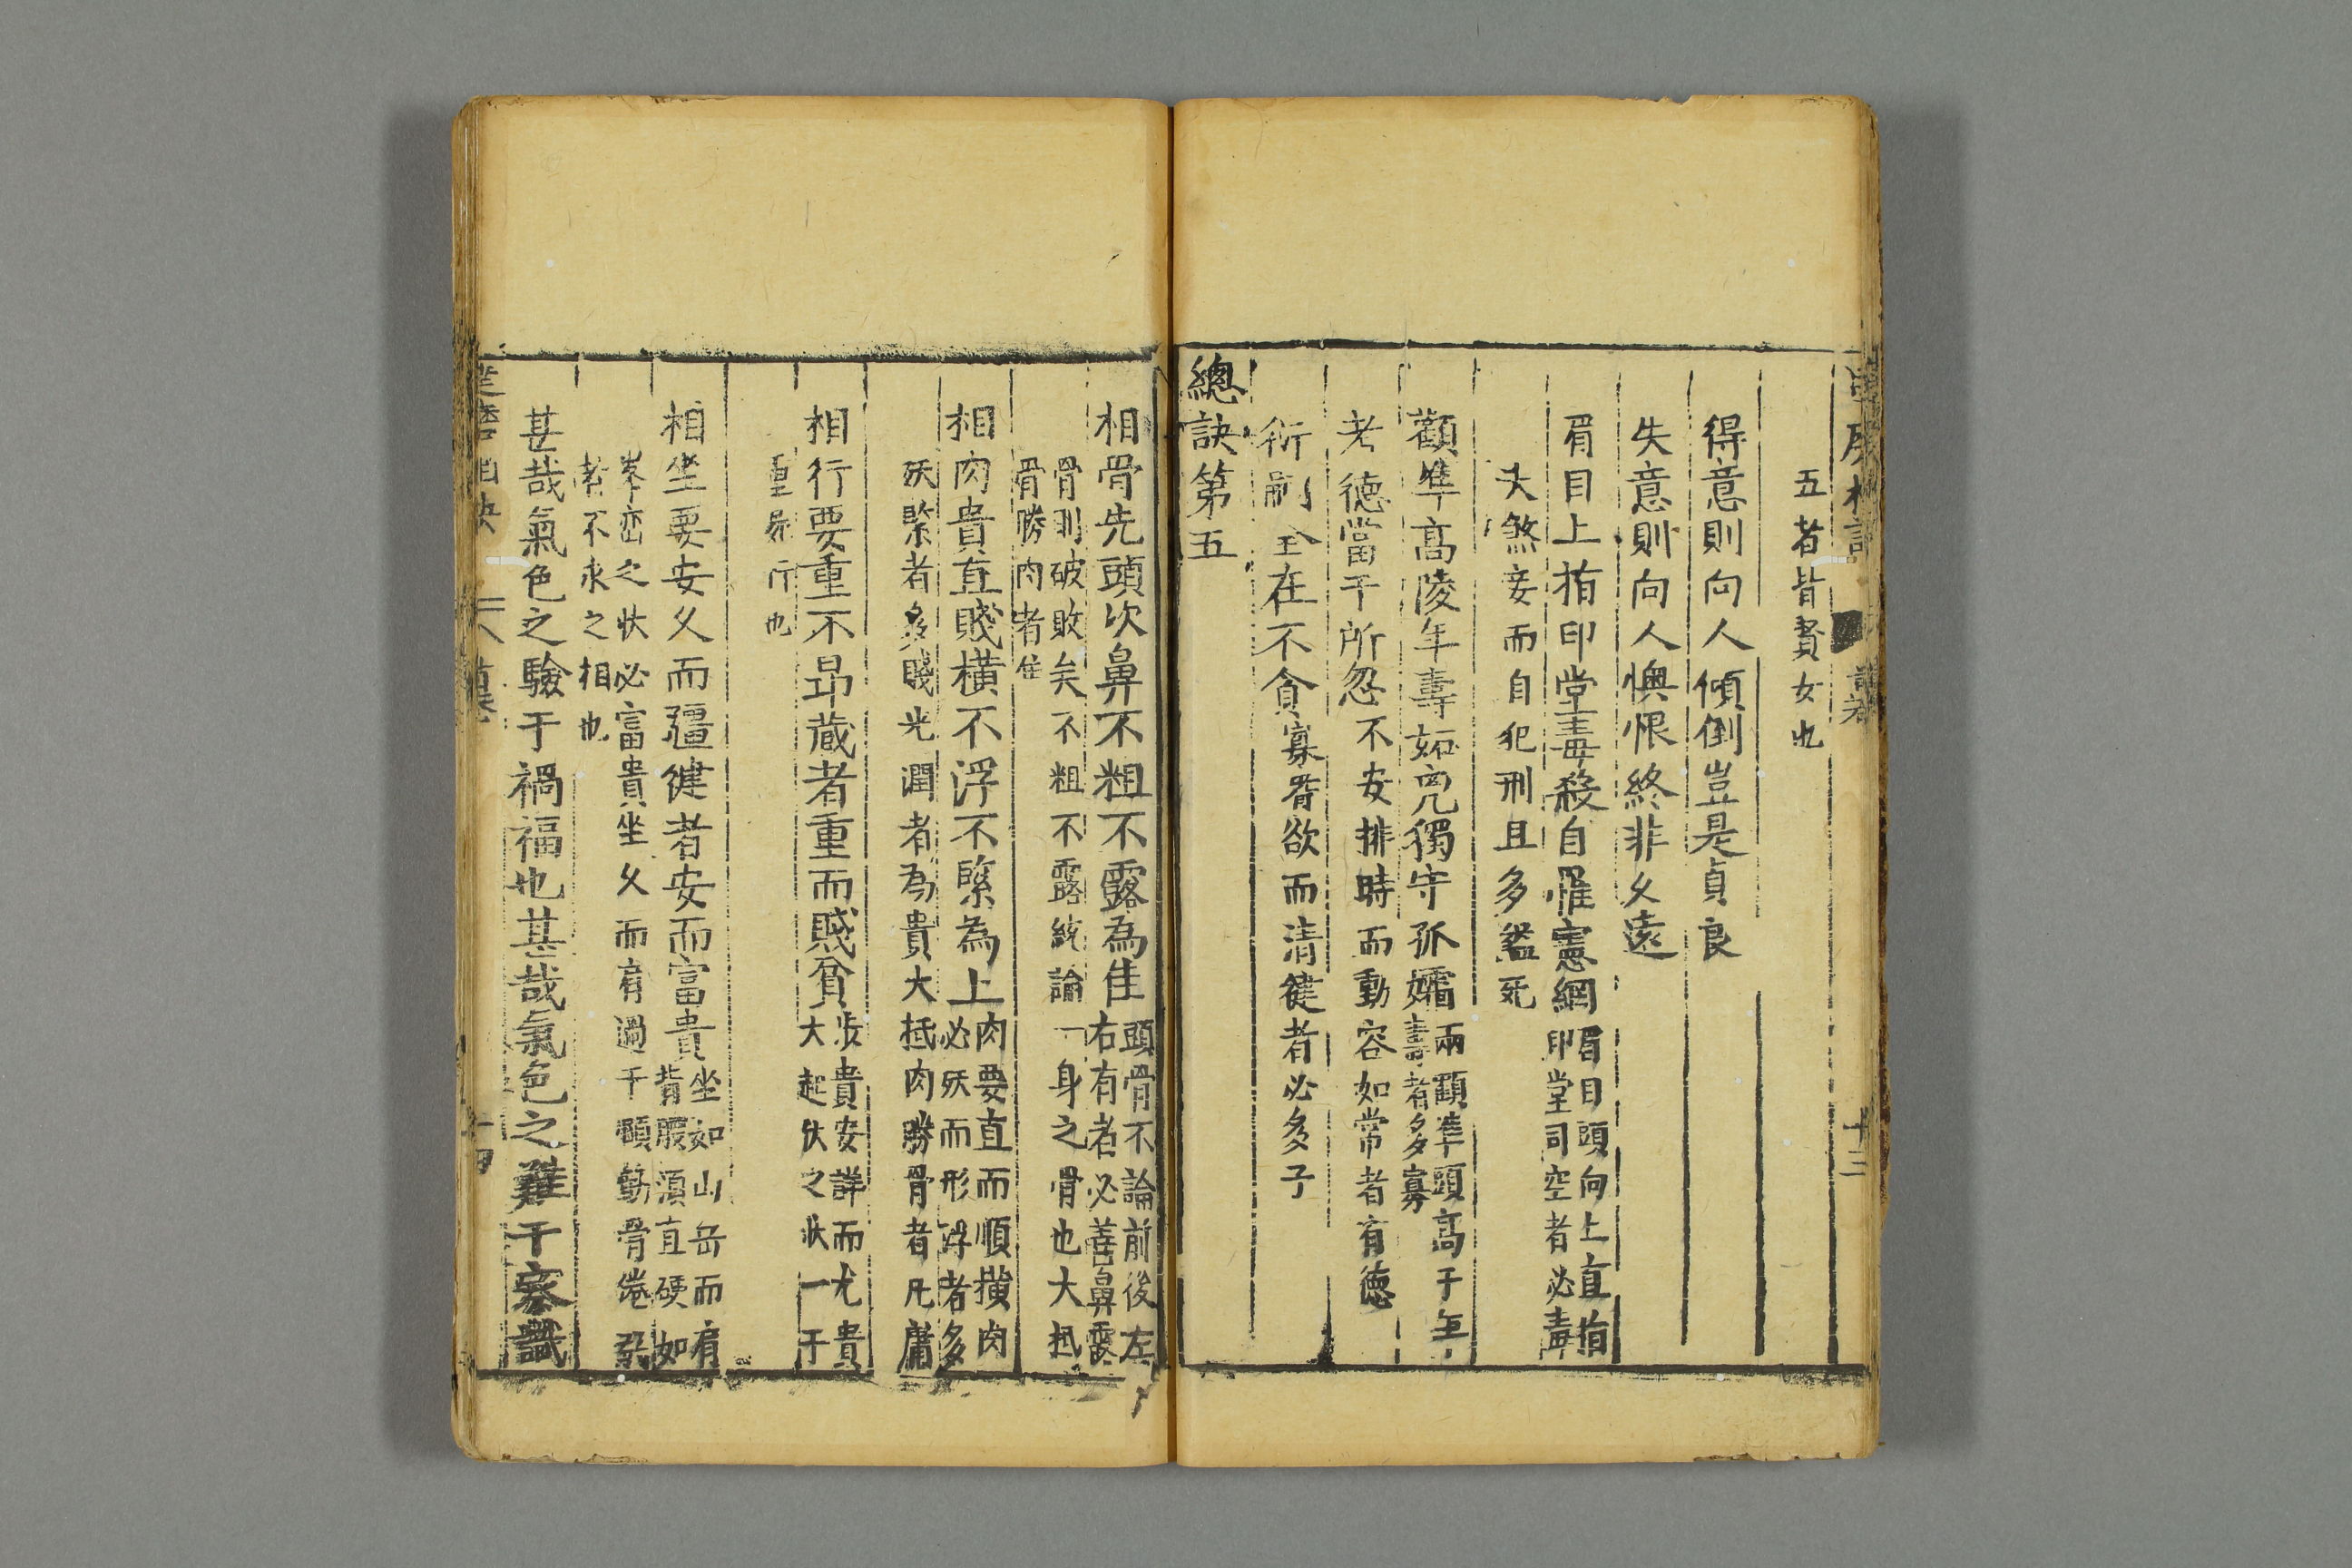 五者皆貴女也
得意則向人傾倒豈是貞良
失意則向人懊恨終非久遠
眉目上指印堂毒殺自罹憲網
眉目頭向上直指
印堂司空者必毒
夫煞妾而自犯刑且多縊死
顴準高陵年壽妬兇獨守孤孀
兩顴準頭高于年
壽者多寡
老德當于所忽不安排時而動容如常者有德
衍嗣全在不貪寡嗜欲而清健者必多子
總訣第五
相骨先頭次鼻不粗不露為佳
頭骨不論前後左
右有者必善鼻露
骨則破敗矣不粗不露統論一身之骨也大抵
骨勝肉者佳
相肉貴直賤橫不浮不緊為上
肉要直而順橫肉
必殀而形浮者多
殀緊者多賤光潤者為貴大抵肉勝骨者凡庸
相行要重不昂藏者重而賤貧
步貴安詳而尤貴
大起伏之狀一于
重是行也
相坐要安久而彊健者安而富貴
坐如山岳而肩
背腰須直硬如
峯巒之狀必富貴坐久而有過于頭動骨倦
者不永之相也
甚哉氣色之驗于禍福也甚哉氣色之難于察識